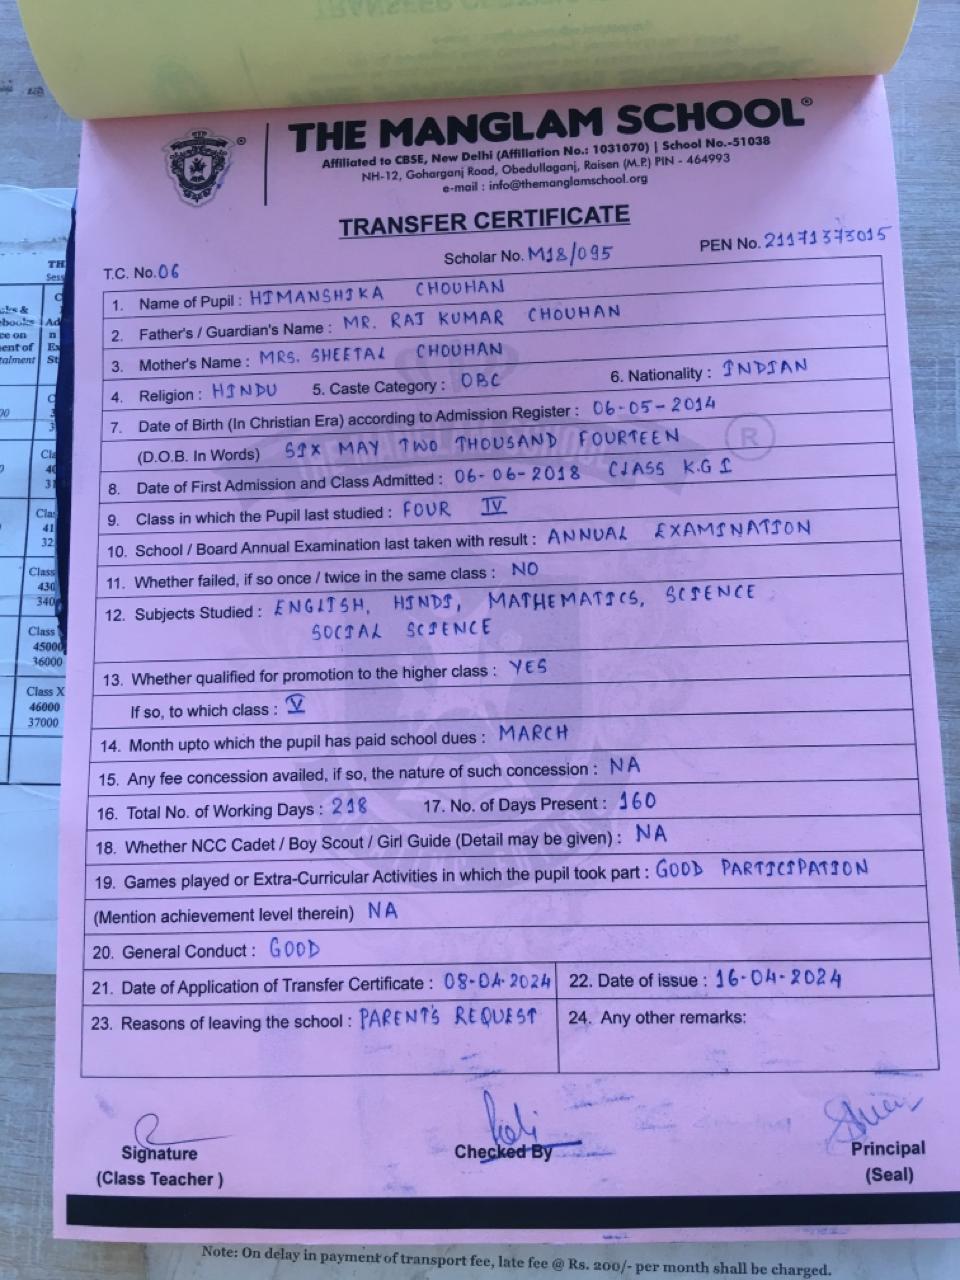 THE MANGLAM SCHOOL®
Affiliated to CBSE, New Delhi (Affiliation No.: 1031070) | School No.-51038
NH-12, Goharganj Road, Obedullaganj, Raisen (M.P.) PIN - 464993
e-mail : info@themanglamschool.org
TRANSFER CERTIFICATE
T.C. No. 06 Scholar No. M18/095 PEN No. 21171373015
1. Name of Pupil : HIMANSHIKA CHOUHAN
2. Father's / Guardian's Name : MR. RAJ KUMAR CHOUHAN
3. Mother's Name : MRS. SHEETAL CHOUHAN
4. Religion : HINDU 5. Caste Category : OBC 6. Nationality : INDIAN
7. Date of Birth (In Christian Era) according to Admission Register : 06-05-2014
(D.O.B. In Words) SIX MAY TWO THOUSAND FOURTEEN
8. Date of First Admission and Class Admitted : 06-06-2018 CLASS K.G I
9. Class in which the Pupil last studied : FOUR IV
10. School / Board Annual Examination last taken with result : ANNUAL EXAMINATION
11. Whether failed, if so once / twice in the same class : NO
12. Subjects Studied : ENGLISH, HINDI, MATHEMATICS, SCIENCE
SOCIAL SCIENCE
13. Whether qualified for promotion to the higher class : YES
If so, to which class : V
14. Month upto which the pupil has paid school dues : MARCH
15. Any fee concession availed, if so, the nature of such concession : NA
16. Total No. of Working Days : 218 17. No. of Days Present : 160
18. Whether NCC Cadet / Boy Scout / Girl Guide (Detail may be given) : NA
19. Games played or Extra-Curricular Activities in which the pupil took part : GOOD PARTICIPATION
(Mention achievement level therein) NA
20. General Conduct : GOOD
21. Date of Application of Transfer Certificate : 08-04-2024 22. Date of issue : 16-04-2024
23. Reasons of leaving the school : PARENT'S REQUEST 24. Any other remarks:
Signature Checked By Principal
(Class Teacher ) (Seal)
Note: On delay in payment of transport fee, late fee @ Rs. 200/- per month shall be charged.
TH
Class
430
340
Class
45000
36000
Class X
46000
37000